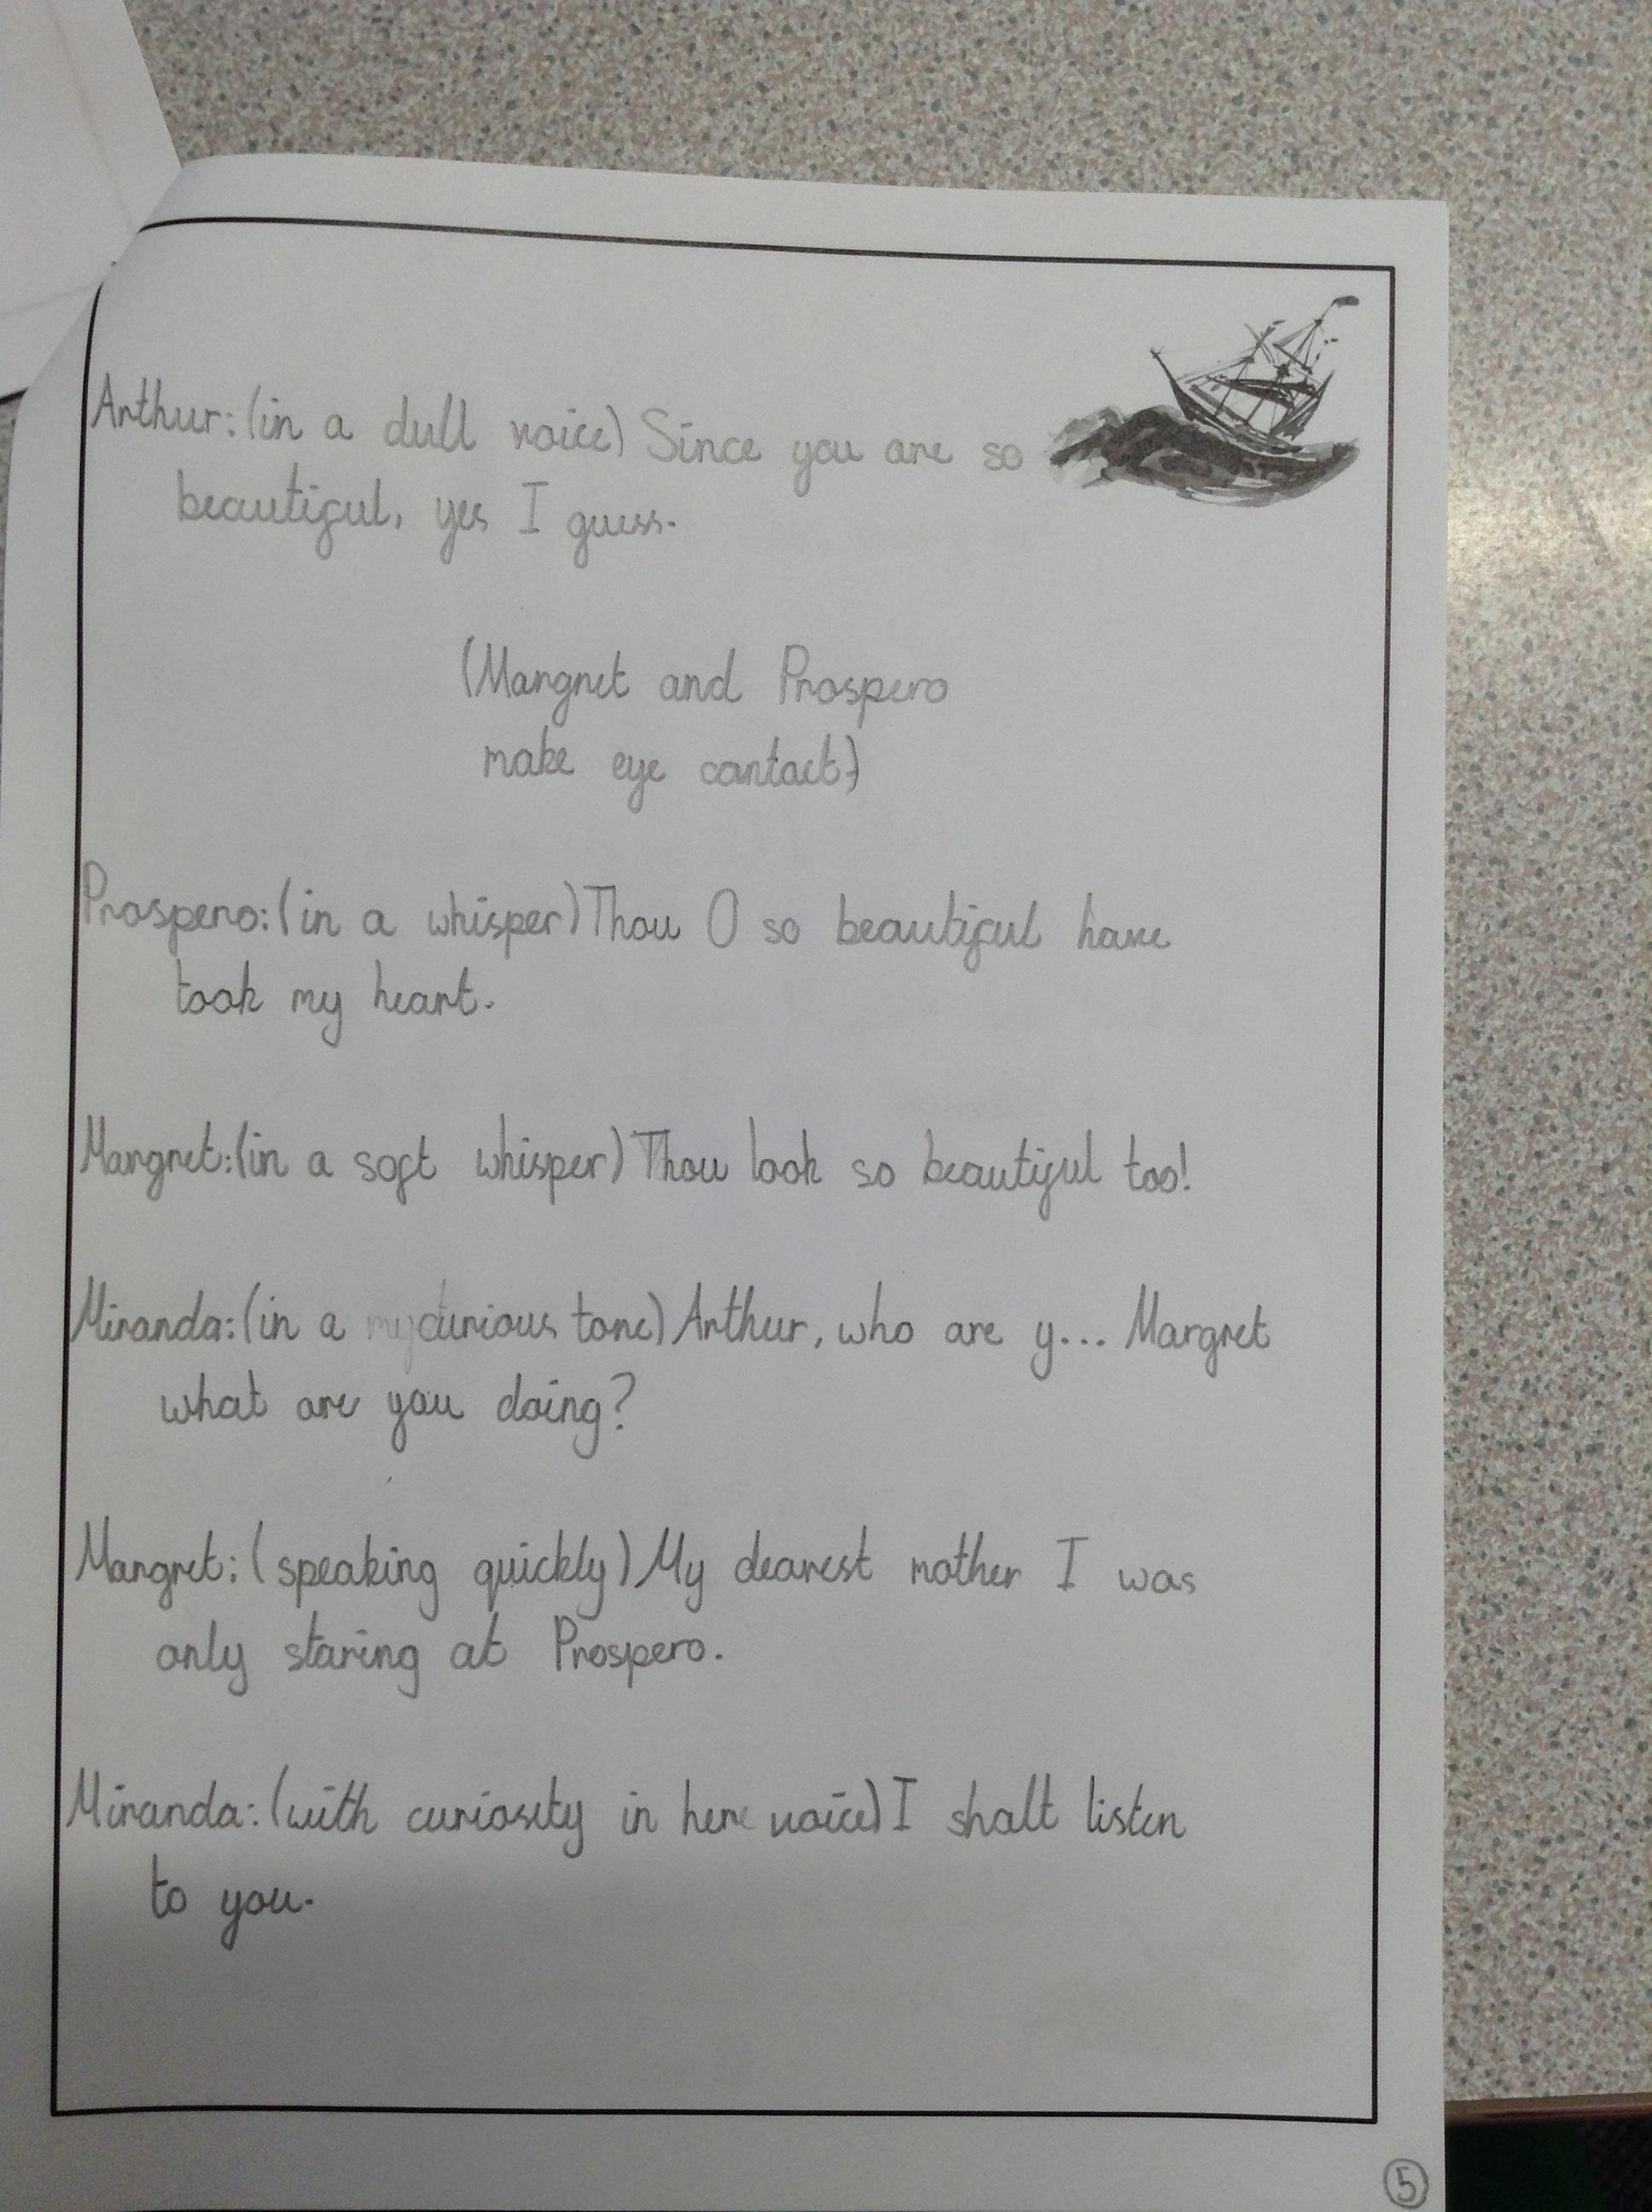 Arthur: (in a dull voice) Since you are so
beautiful, yes I guess.
(Margret and Prospero
make eye contact)
Prospero: (in a whisper) Thou O so beautiful have
took my heart.
Margret: (in a soft whisper) Thou look so beautiful too!
Miranda: (in a curious tone) Arthur, who are y... Margret
what are you doing?
Margret: (speaking quickly) My dearest mother I was
only staring at Prospero.
Miranda: (with curiosity in her voice) I shalt listen
to you.
5